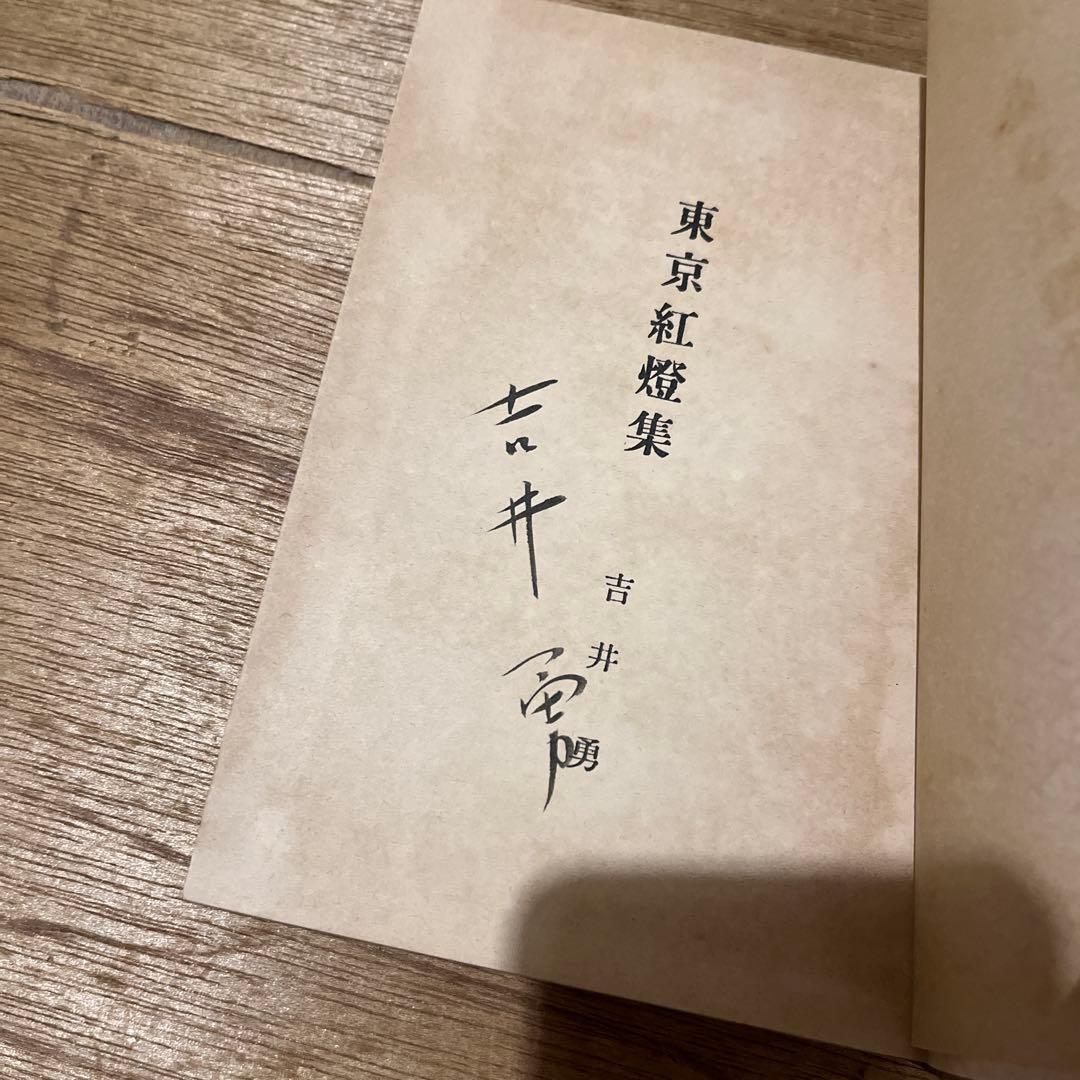 東京紅燈集
吉井勇
吉井勇